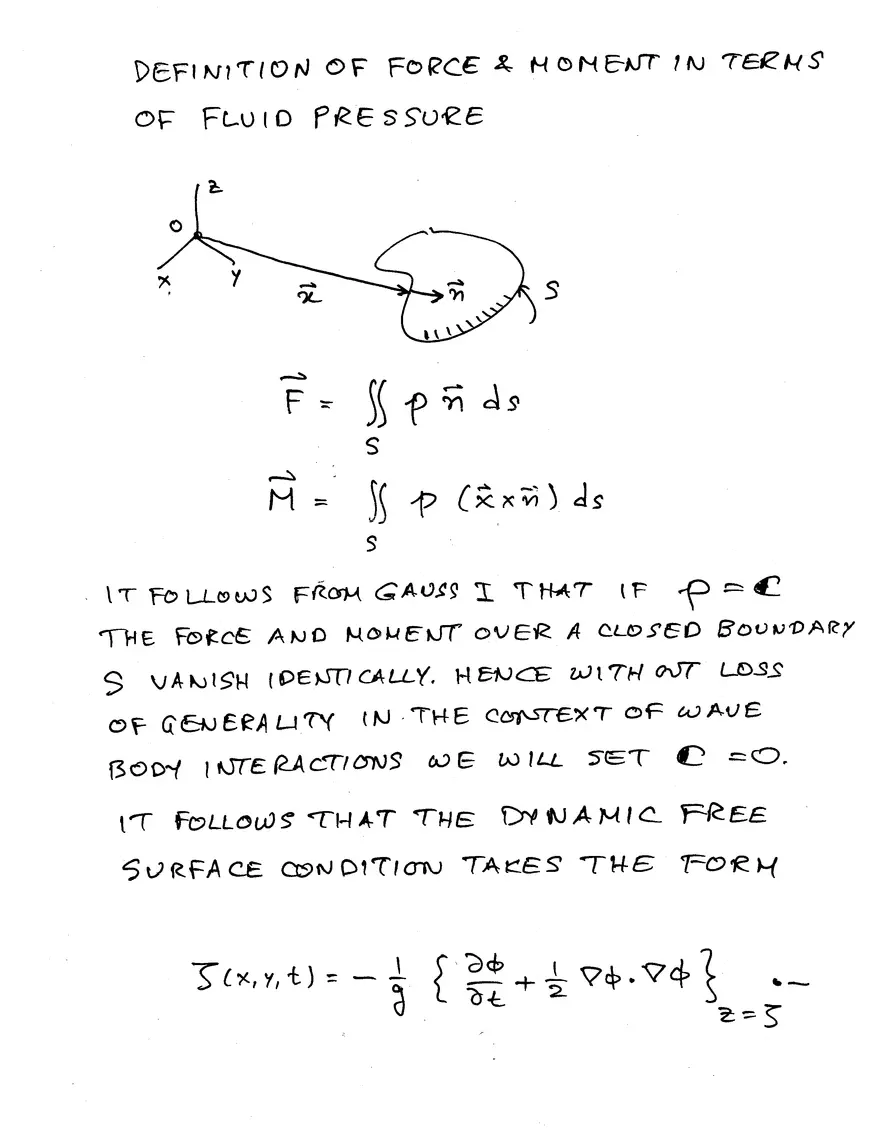 DEFINITION OF FORCE & MOMENT IN TERMS
OF FLUID PRESSURE
z
O
x
y
x⃗
n⃗
S
F⃗ = ∬_S p n⃗ ds
M⃗ = ∬_S p (x⃗ × n⃗) ds
IT FOLLOWS FROM GAUSS I THAT IF p = C
THE FORCE AND MOMENT OVER A CLOSED BOUNDARY
S VANISH IDENTICALLY. HENCE WITHOUT LOSS
OF GENERALITY IN THE CONTEXT OF WAVE
BODY INTERACTIONS WE WILL SET C = 0.
IT FOLLOWS THAT THE DYNAMIC FREE
SURFACE CONDITION TAKES THE FORM
ζ(x, y, t) = - 1/g { ∂φ/∂t + 1/2 ∇φ · ∇φ }_{z=ζ}